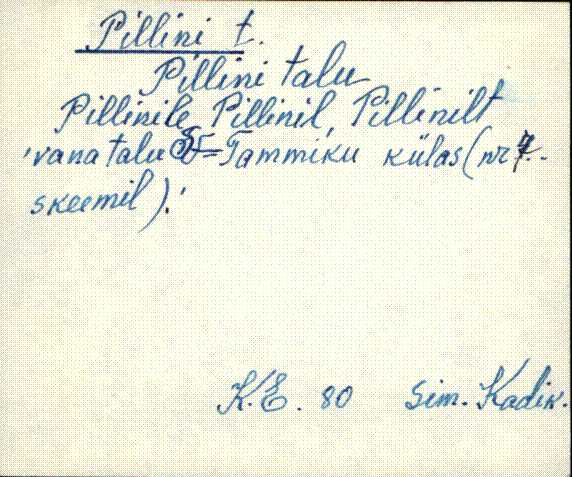 Pillini t.
Pillini talu
Pillinile, Pillinil, Pillinilt
'vana talu Tammiku külas (nr 7.
skeemil).'
K.E. 80 Sim. Kadik.